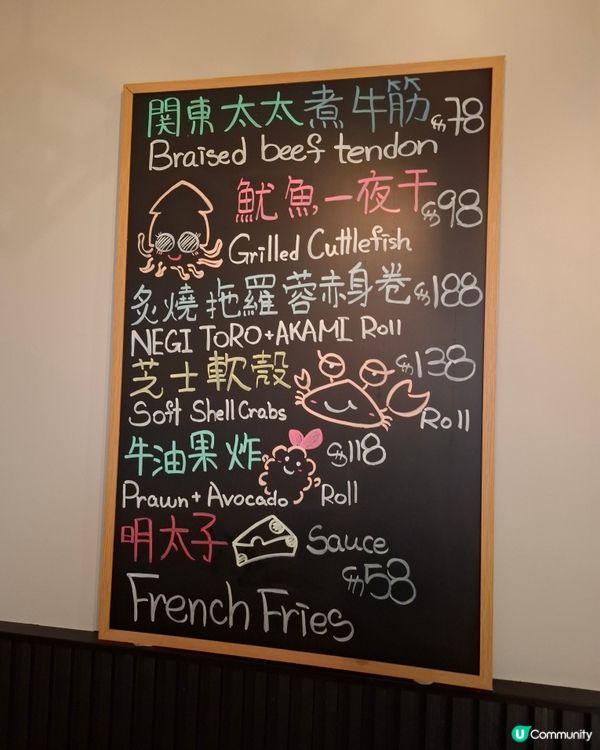 関東太太煮牛筋 $78
Braised beef tendon
魷魚一夜干 $98
Grilled Cuttlefish
炙燒拖羅蓉赤身卷 $188
NEGI TORO+AKAMI Roll
芝士軟殼 $138
Soft Shell Crabs Roll
牛油果炸 $118
Prawn + Avocado Roll
明太子 Sauce
$58
French Fries
U Community